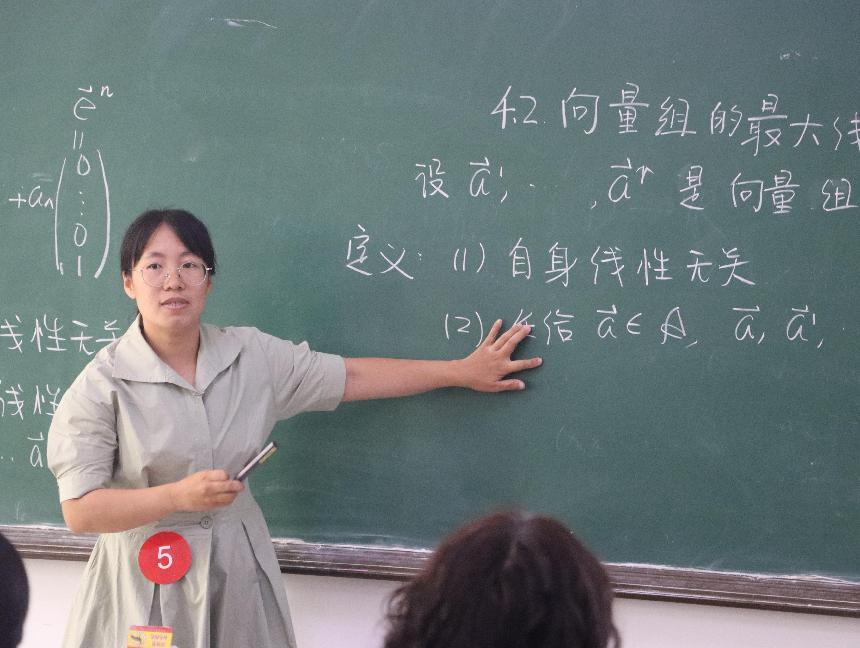 e⃗ⁿ
=
+aₙ(0 ⋮ 0 1)
线性无关
线性
.. a⃗
4.2. 向量组的最大线
设 a⃗¹, ·· , a⃗ʳ 是向量组
定义: (1) 自身线性无关
(2) 任给 a⃗ ∈ A, a⃗, a⃗¹, ·
5